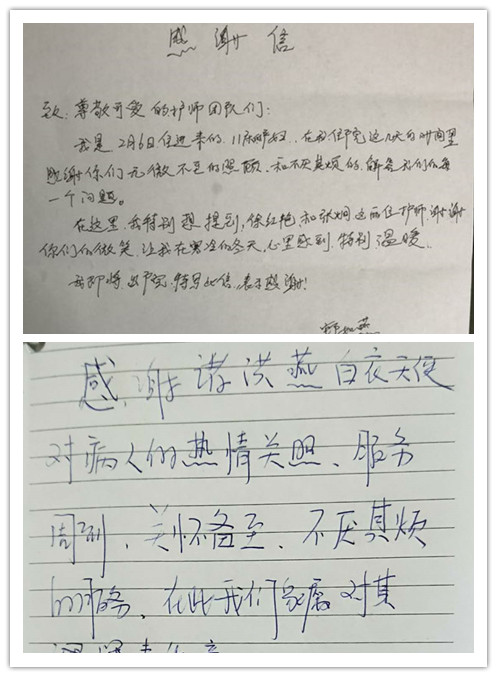 感谢信
致:尊敬可爱的护师团队们:
我是2月6日住进来的,11床孕妇.在我住院这几天的时间里
感谢你们无微不至的照顾,和不厌其烦的,解答我们的每
一个问题。
在这里,我特别想提到,徐红艳,和张娴这两位护师,谢谢
你们的微笑,让我在寒冷的冬天,心里感到,特别温暖.
我即将出院.特写此信.表示感谢!
感谢诸洪燕白衣天使
对病人的热情关照、服务
周到、关怀备至、不厌其烦
的服务、在此我们家属对其